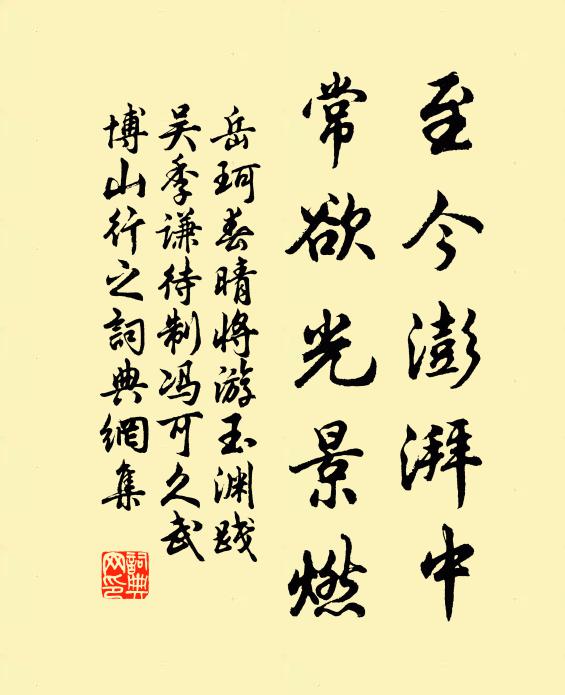 至今澎湃中
常欲光景燃
岳珂春晴将游玉渊践
吴季谦待制冯可久武
博山行之詞典網集
詞典网印